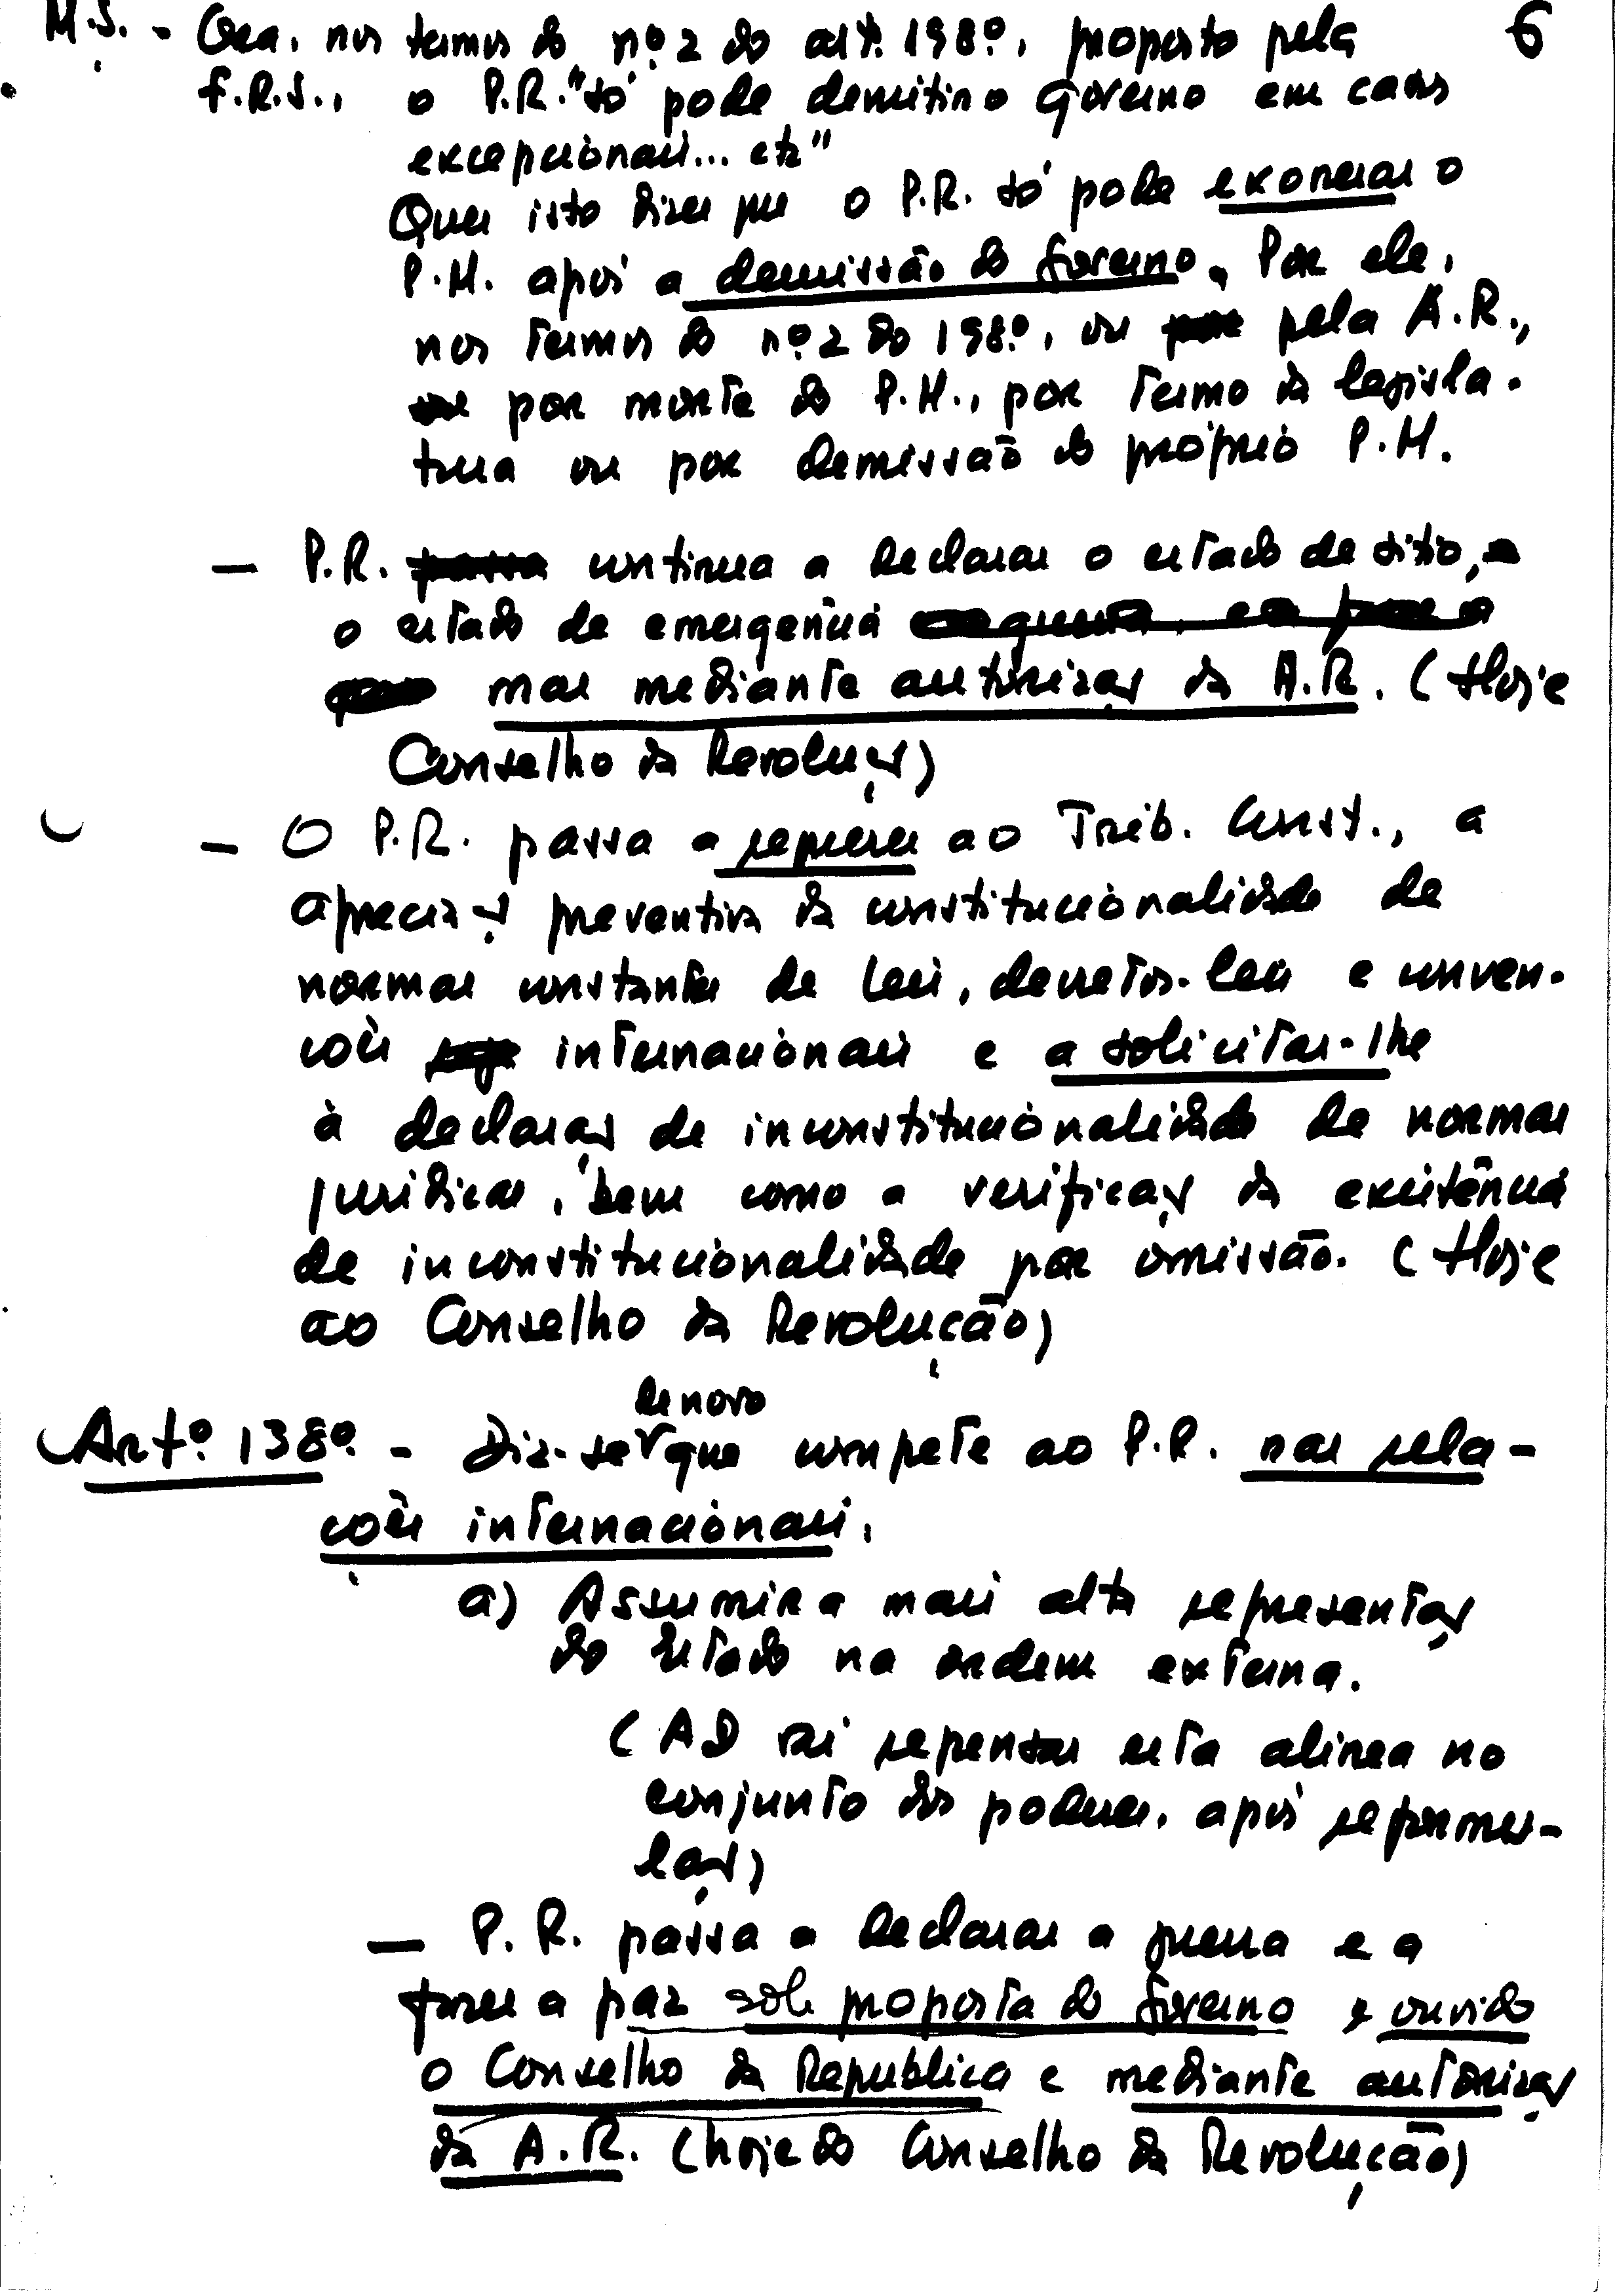 M.S. - Ora, nos termos do nº 2 do artº. 198º, proposto pela 6
F.R.S., o P.R. "só pode demitir o governo em casos
excepcionais... etc"
Quer isto dizer que o P.R. só pode exonerar o
P.M. após a demissão do Governo. Por ele,
nos termos do nº 2 do 198º, ou por pela A.R.,
ou por morte do P.M., por termo da legisla-
tura ou por demissão do próprio P.M.
— P.R. passa continua a declarar o estado de sitio, e
o estado de emergência
mas mediante autorização da A.R. (Hoje
Conselho da Revolução)
— O P.R. passa a requerer ao Trib. Const., a
apreciação preventiva da constitucionalidade de
normas constantes de leis, decretos-leis e conven-
ções internacionais e a solicitar-lhe
à declaração de inconstitucionalidade de normas
juridicas, bem como a verificação da existência
de inconstitucionalidade por omissão. (Hoje
ao Conselho da Revolução)
de novo
Artº. 138º. - Diz-se que compete ao P.R. nas rela-
ções internacionais,
a) Assumir a mais alta representação
do Estado na ordem externa.
(AD vai repensar esta alinea no
conjunto dos poderes, após reformu-
lação)
— P.R. passa a declarar a guerra e a
fazer a paz sob proposta do Governo, ouvido
o Conselho da Republica e mediante autorização
da A.R. (hoje do Conselho da Revolução)